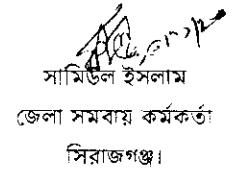 সামিউল ইসলাম
জেলা সমবায় কর্মকর্তা
সিরাজগঞ্জ।